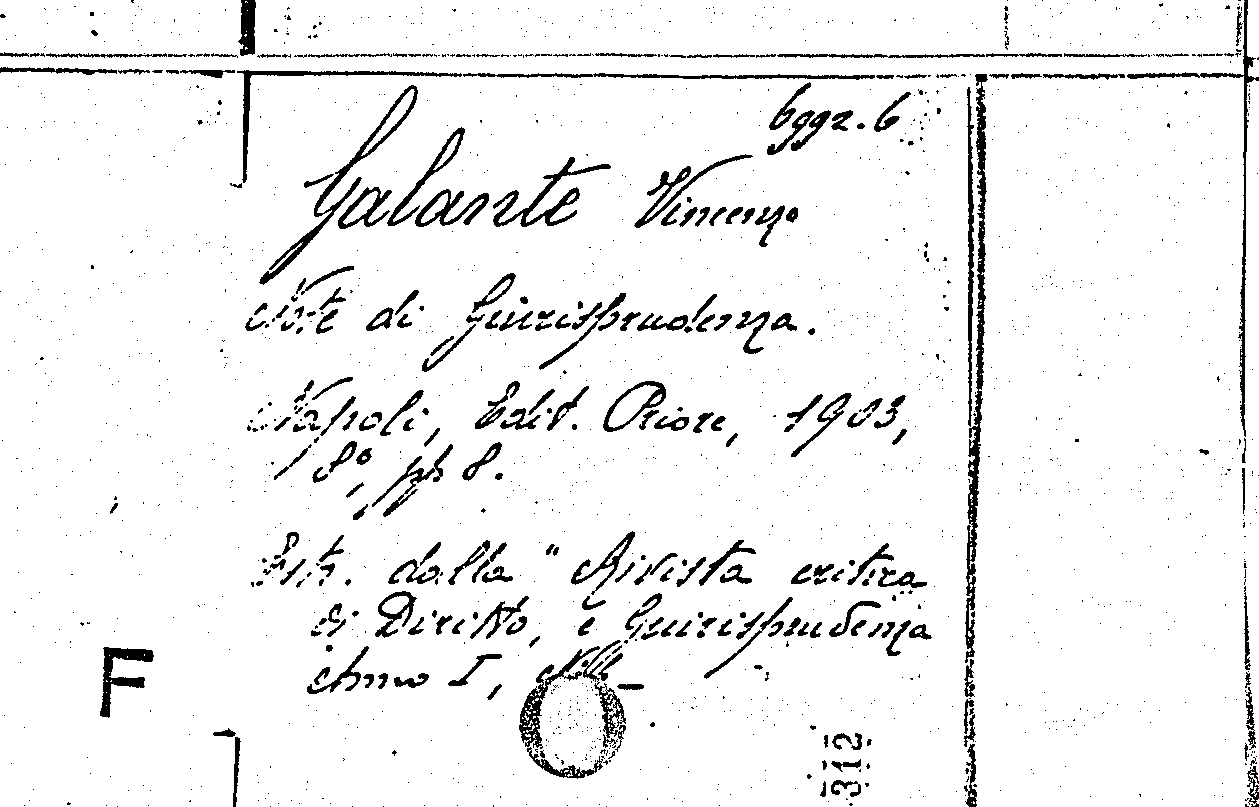 6992.6
Galante Vincenzo
Note di Giurisprudenza.
Napoli, Edit. Priore, 1903,
8°, pp 8.
Estr. dalla "Rivista critica
di Diritto, e Giurisprudenza
Anno I,
F
312